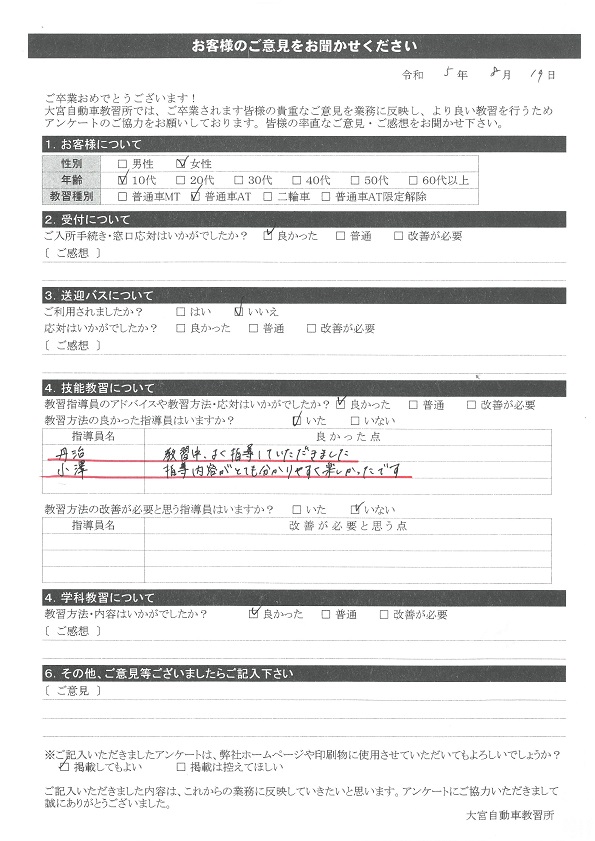 お客様のご意見をお聞かせください
令和 5 年 8 月 19 日
ご卒業おめでとうございます！
大宮自動車教習所では、ご卒業されます皆様の貴重なご意見を業務に反映し、より良い教習を行うため
アンケートのご協力をお願いしております。皆様の率直なご意見・ご感想をお聞かせ下さい。
1. お客様について
性別 □ 男性 ☑ 女性
年齢 ☑ 10代 □ 20代 □ 30代 □ 40代 □ 50代 □ 60代以上
教習種別 □ 普通車MT ☑ 普通車AT □ 二輪車 □ 普通車AT限定解除
2. 受付について
ご入所手続き・窓口応対はいかがでしたか？ ☑ 良かった □ 普通 □ 改善が必要
〔 ご感想 〕
3. 送迎バスについて
ご利用されましたか？ □ はい ☑ いいえ
応対はいかがでしたか？ □ 良かった □ 普通 □ 改善が必要
〔 ご感想 〕
4. 技能教習について
教習指導員のアドバイスや教習方法・応対はいかがでしたか？ ☑ 良かった □ 普通 □ 改善が必要
教習方法の良かった指導員はいますか？ ☑ いた □ いない
指導員名 良かった点
丹治 教習中、よく指導していただきました
小澤 指導内容がとても分かりやすく楽しかったです
教習方法の改善が必要と思う指導員はいますか？ □ いた ☑ いない
指導員名 改善が必要と思う点
4. 学科教習について
教習方法・内容はいかがでしたか？ ☑ 良かった □ 普通 □ 改善が必要
〔 ご感想 〕
6. その他、ご意見等ございましたらご記入下さい
〔 ご意見 〕
※ご記入いただきましたアンケートは、弊社ホームページや印刷物に使用させていただいてもよろしいでしょうか？
☑ 掲載してもよい □ 掲載は控えてほしい
ご記入いただきました内容は、これからの業務に反映していきたいと思います。アンケートにご協力いただきまして
誠にありがとうございました。
大宮自動車教習所